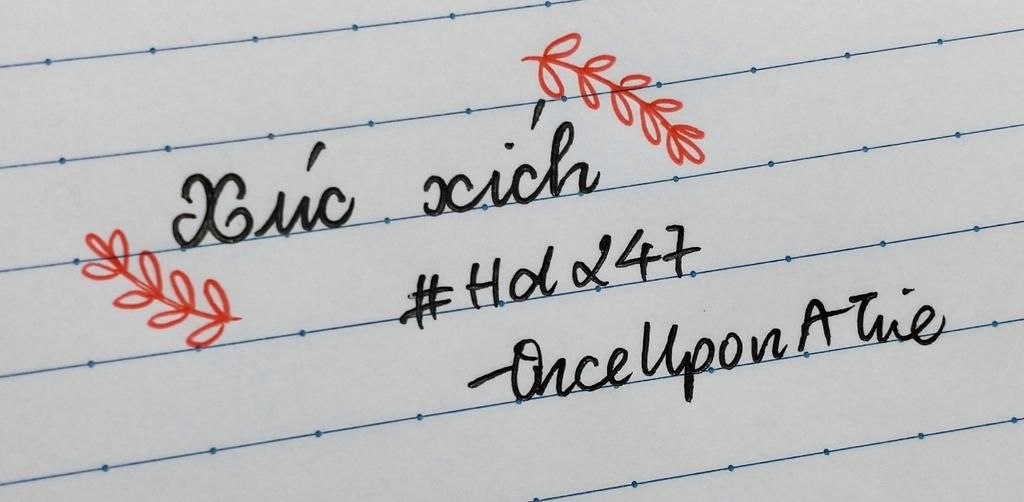 Xúc xích
#Hdα247
-OnceUponATie